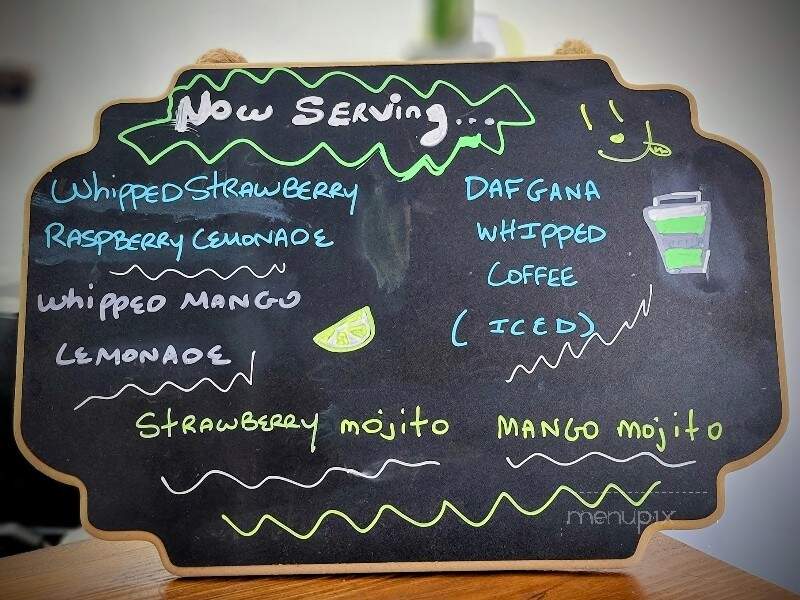 Now Serving...
Whipped Strawberry
Raspberry Lemonade
Whipped Mango
Lemonade
Dafgana
Whipped
Coffee
(Iced)
Strawberry mojito
Mango mojito
menupix